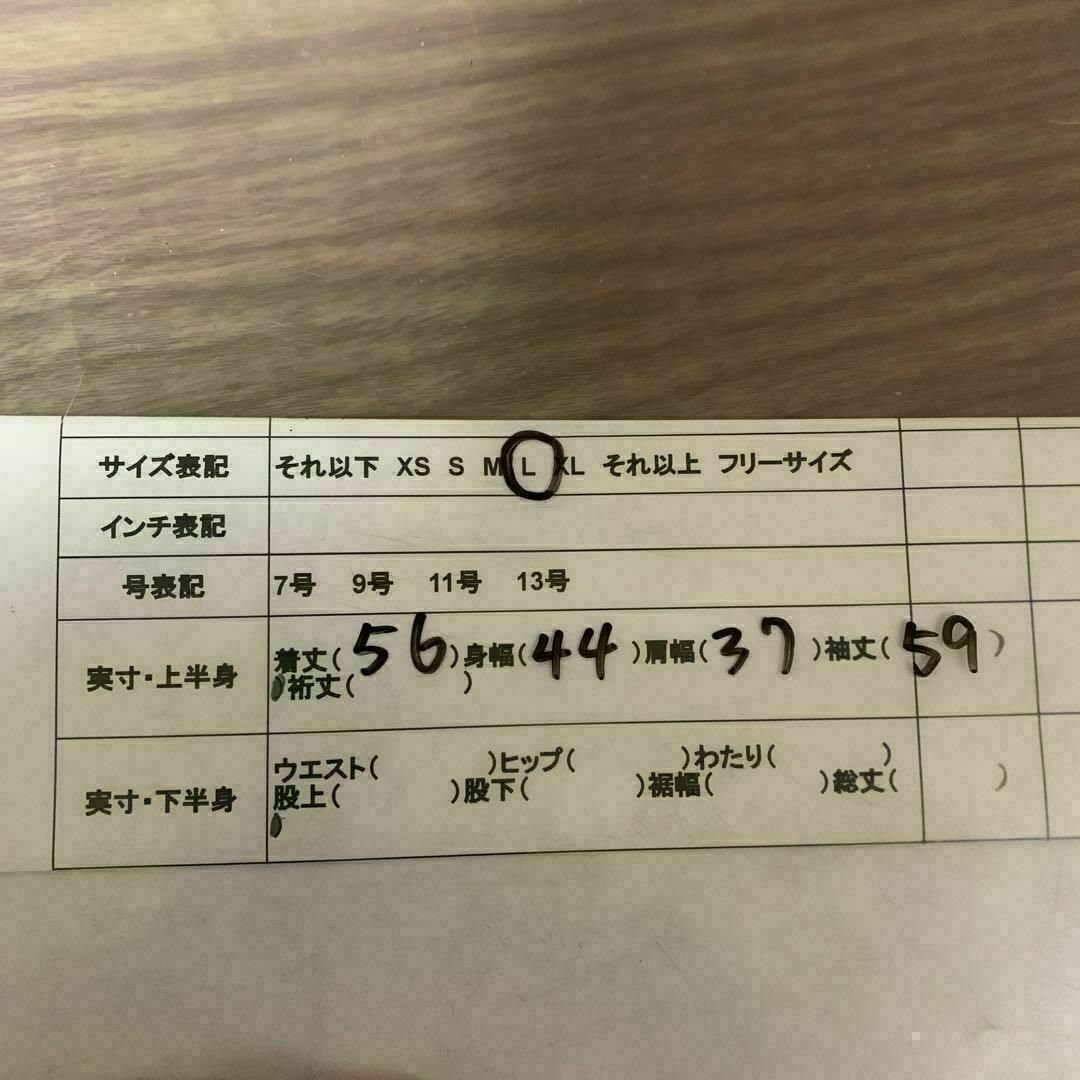 サイズ表記 それ以下 XS S M L XL それ以上 フリーサイズ
インチ表記
号表記 7号 9号 11号 13号
実寸・上半身 着丈( 56 )身幅( 44 )肩幅( 37 )袖丈( 59 )
)裄丈( )
実寸・下半身 ウエスト( )ヒップ( )わたり( )
股上( )股下( )裾幅( )総丈( )
)